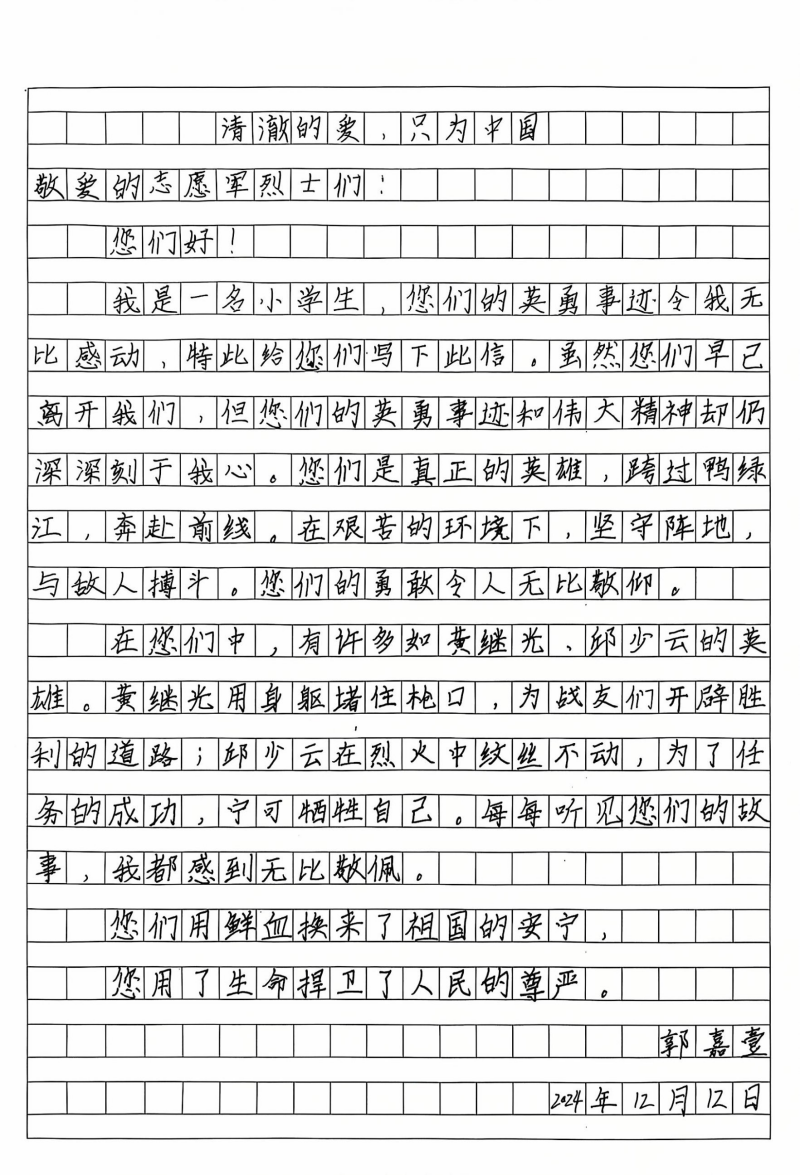 清澈的爱，只为中国
敬爱的志愿军烈士们：
您们好！
我是一名小学生，您们的英勇事迹令我无
比感动，特此给您们写下此信。虽然您们早已
离开我们，但您们的英勇事迹和伟大精神却仍
深深刻于我心。您们是真正的英雄，跨过鸭绿
江，奔赴前线。在艰苦的环境下，坚守阵地，
与敌人搏斗。您们的勇敢令人无比敬仰。
在您们中，有许多如黄继光、邱少云的英
雄。黄继光用身躯堵住枪口，为战友们开辟胜
利的道路；邱少云在烈火中纹丝不动，为了任
务的成功，宁可牺牲自己。每每听见您们的故
事，我都感到无比敬佩。
您们用鲜血换来了祖国的安宁，
您用了生命捍卫了人民的尊严。
郭嘉壹
2024年12月12日